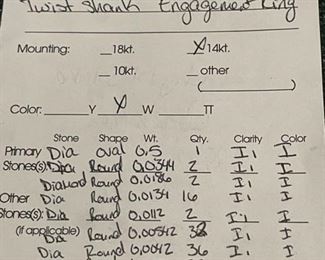 Twist Shank Engagement Ring
Mounting: __18kt. X 14kt.
__10kt. __other
(__________)
Color: ____Y X W ____TT
Stone Shape Wt. Qty. Clarity Color
Primary Dia Oval 0.5 1 I1 I
Stones(s): Dia Round 0.0344 2 I1 I
Diamond Round 0.0186 2 I1 I
Other Dia Round 0.0134 16 I1 I
Stones(s): Dia Round 0.0112 2 I1 I
(If applicable) Dia Round 0.00542 38 I1 I
Dia Round 0.0042 36 I1 I